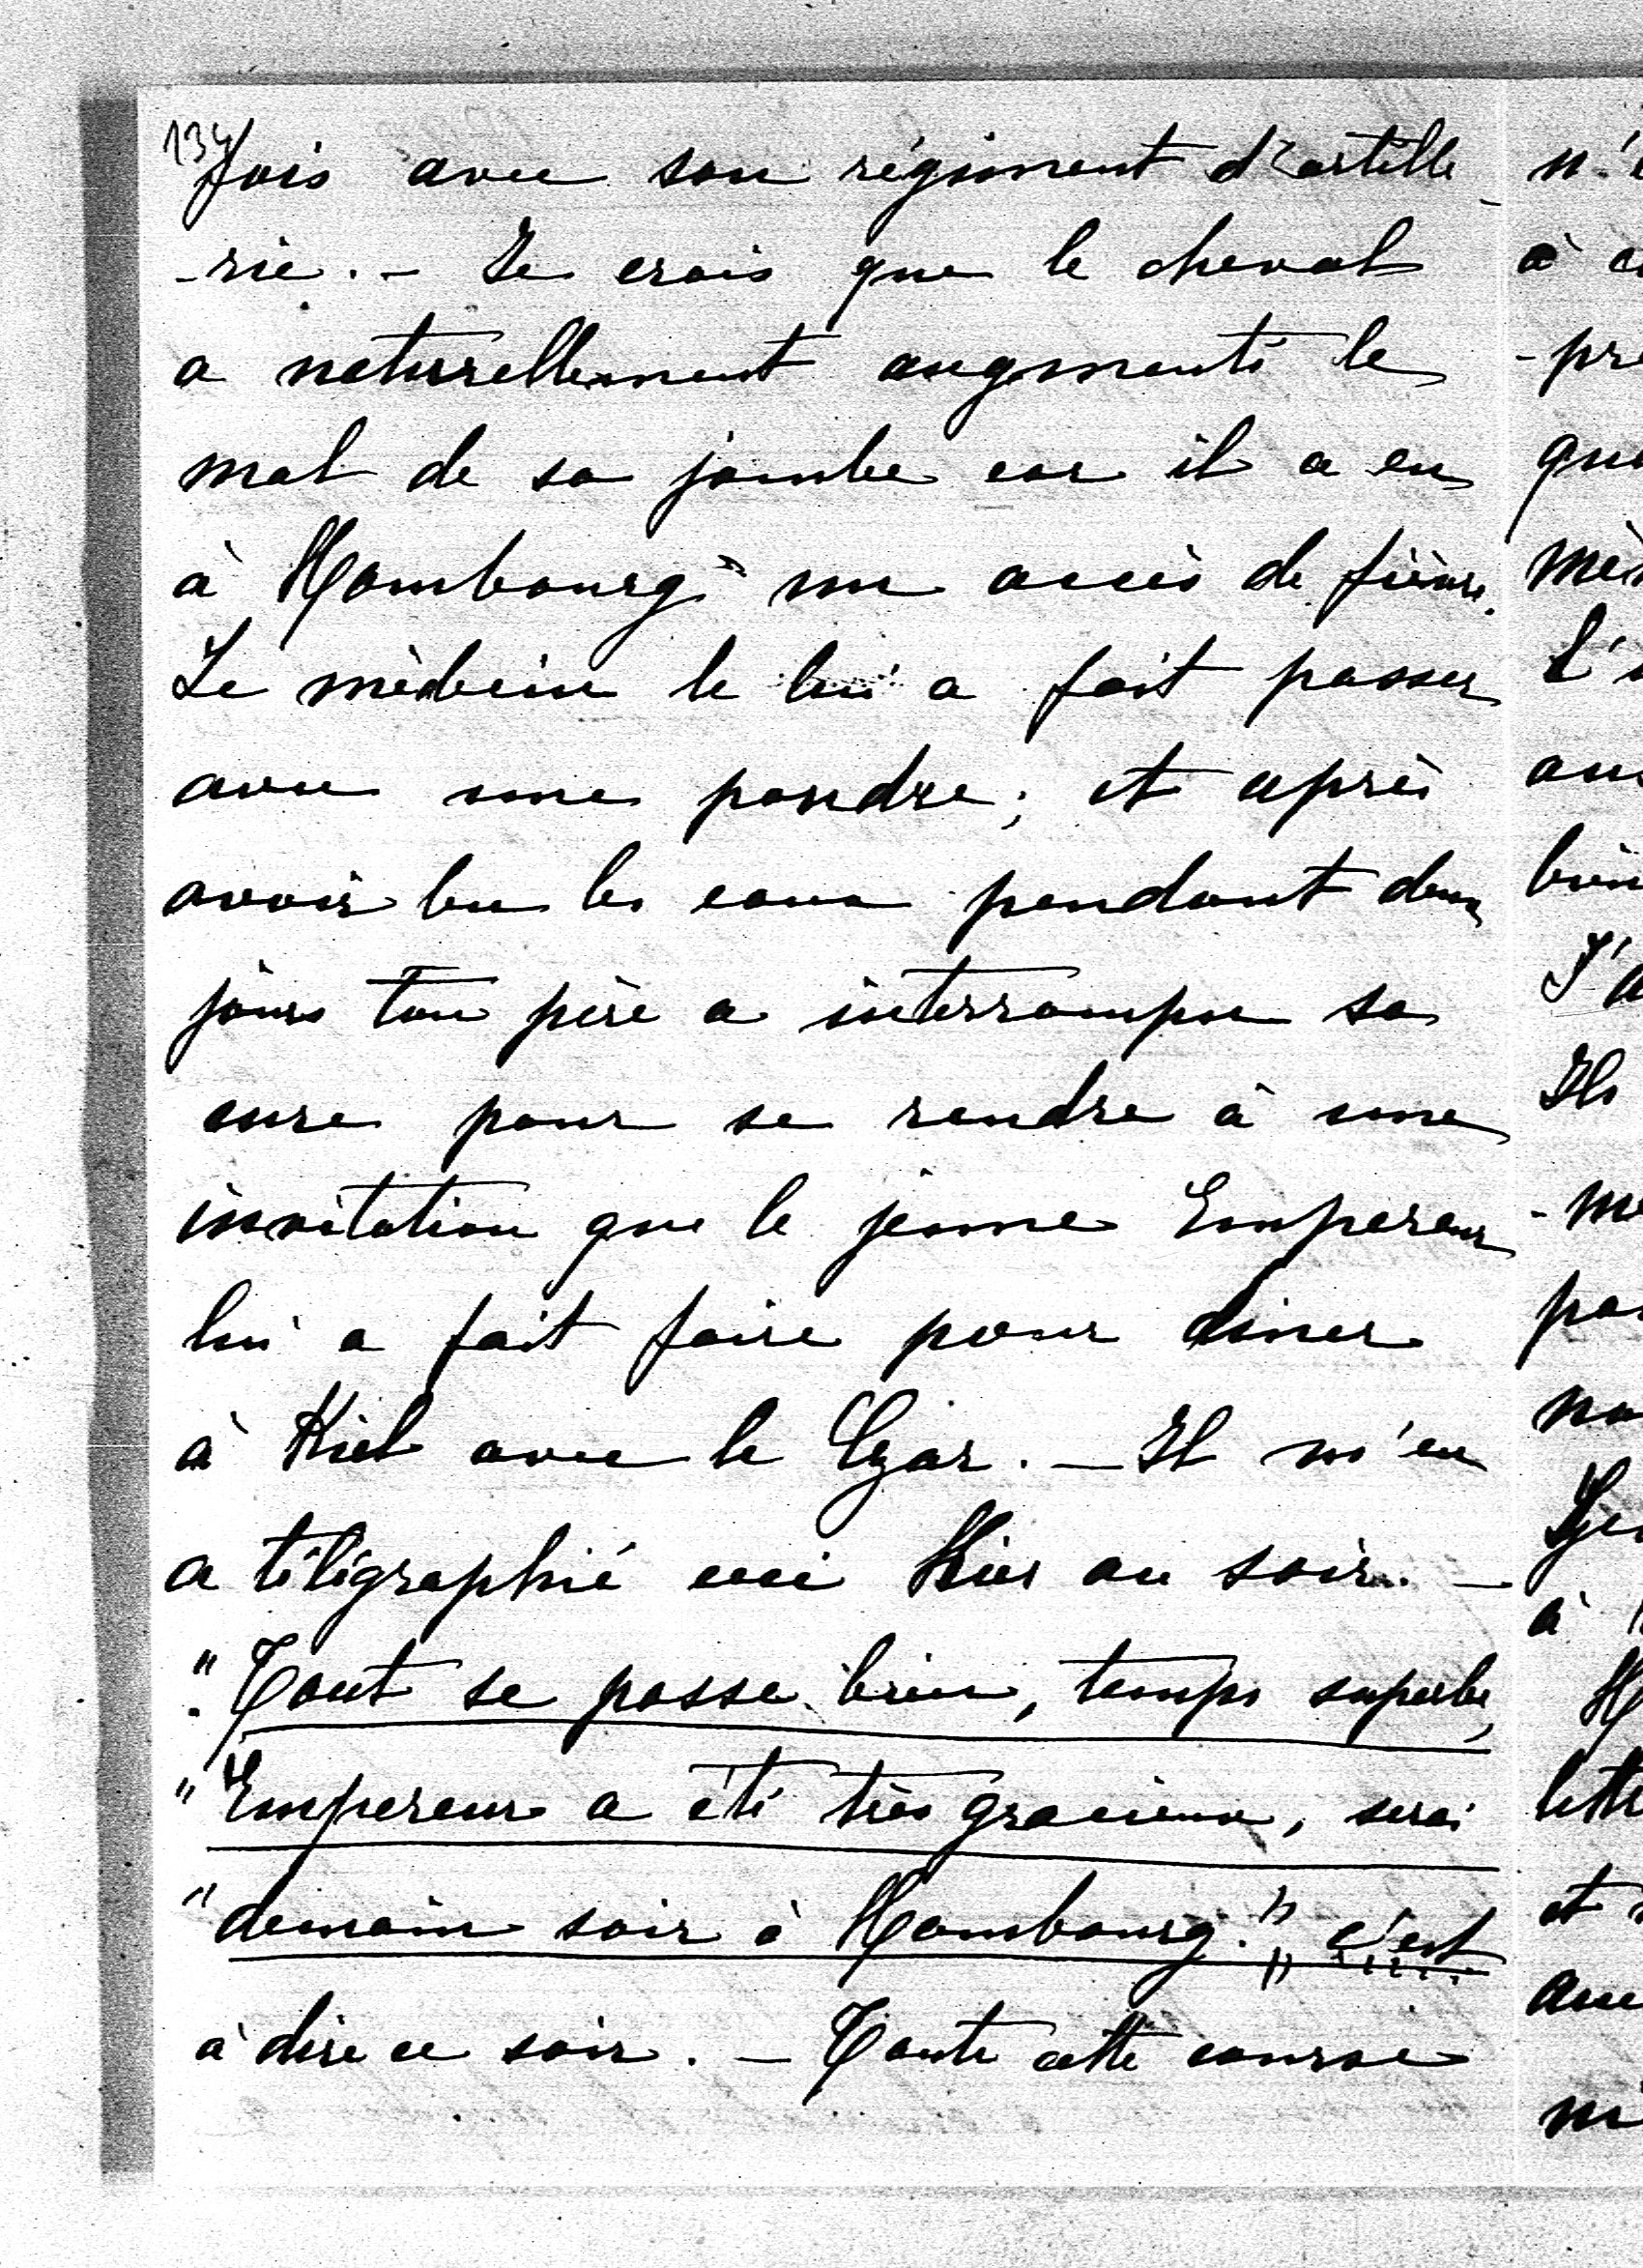 134
fois avec son régiment d'artille-
-rie. - Je crois que le cheval
a naturellement augmenté le
mal de sa jambe car il a eu
à Hombourg un accès de fièvre.
Le médecin le lui a fait passer
avec une poudre; et après
avoir bu les eaux pendant deux
jours ton père a interrompu sa
cure pour se rendre à une
invitation que le jeune Empereur
lui a fait faire pour diner
à Kiel avec le Czar. - Il m'en
a télégraphié ceci Hier au soir. -
"Tout se passe bien, temps superbe,
"Empereur a été très gracieux, serai
"demain soir à Hombourg." c'est
à dire ce soir. - Toute cette course
n'
à
-pr
l'
J'a
Ils
à
et